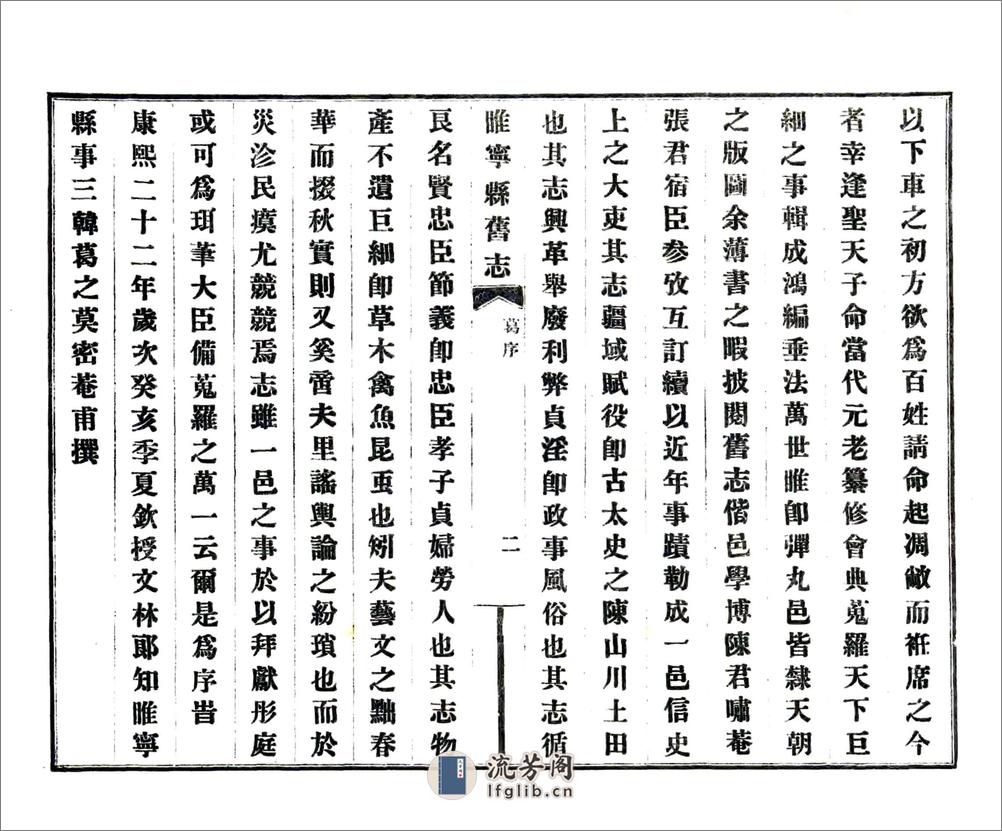 以下車之初方欲爲百姓請命起凋敝而袵席之今
者幸逢聖天子命當代元老纂修會典蒐羅天下巨
細之事輯成鴻編垂法萬世睢卽彈丸邑皆隸天朝
之版圖余薄書之暇披閱舊志偕邑學博陳君嘯菴
張君宿臣參攷互訂續以近年事蹟勒成一邑信史
上之大吏其志疆域賦役卽古太史之陳山川土田
也其志興革舉廢利弊貞淫卽政事風俗也其志循
睢寧縣舊志
葛序
二
良名賢忠臣節義卽忠臣孝子貞婦勞人也其志物
產不遺巨細卽草木禽魚昆虫也矧夫藝文之黜春
華而掇秋實則又奚啻夫里謠輿論之紛瑣也而於
災沴民瘼尤競競焉志雖一邑之事於以拜獻彤庭
或可爲珥筆大臣備蒐羅之萬一云爾是爲序旹
康熙二十二年歲次癸亥季夏欽授文林郞知睢寧
縣事三韓葛之莫密菴甫撰
流芳阁
lfglib.cn